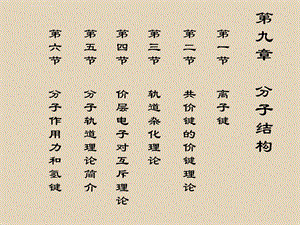 第九章　分子结构
第一节　离子键
第二节　共价键的价键理论
第三节　轨道杂化理论
第四节　价层电子对互斥理论
第五节　分子轨道理论简介
第六节　分子作用力和氢键